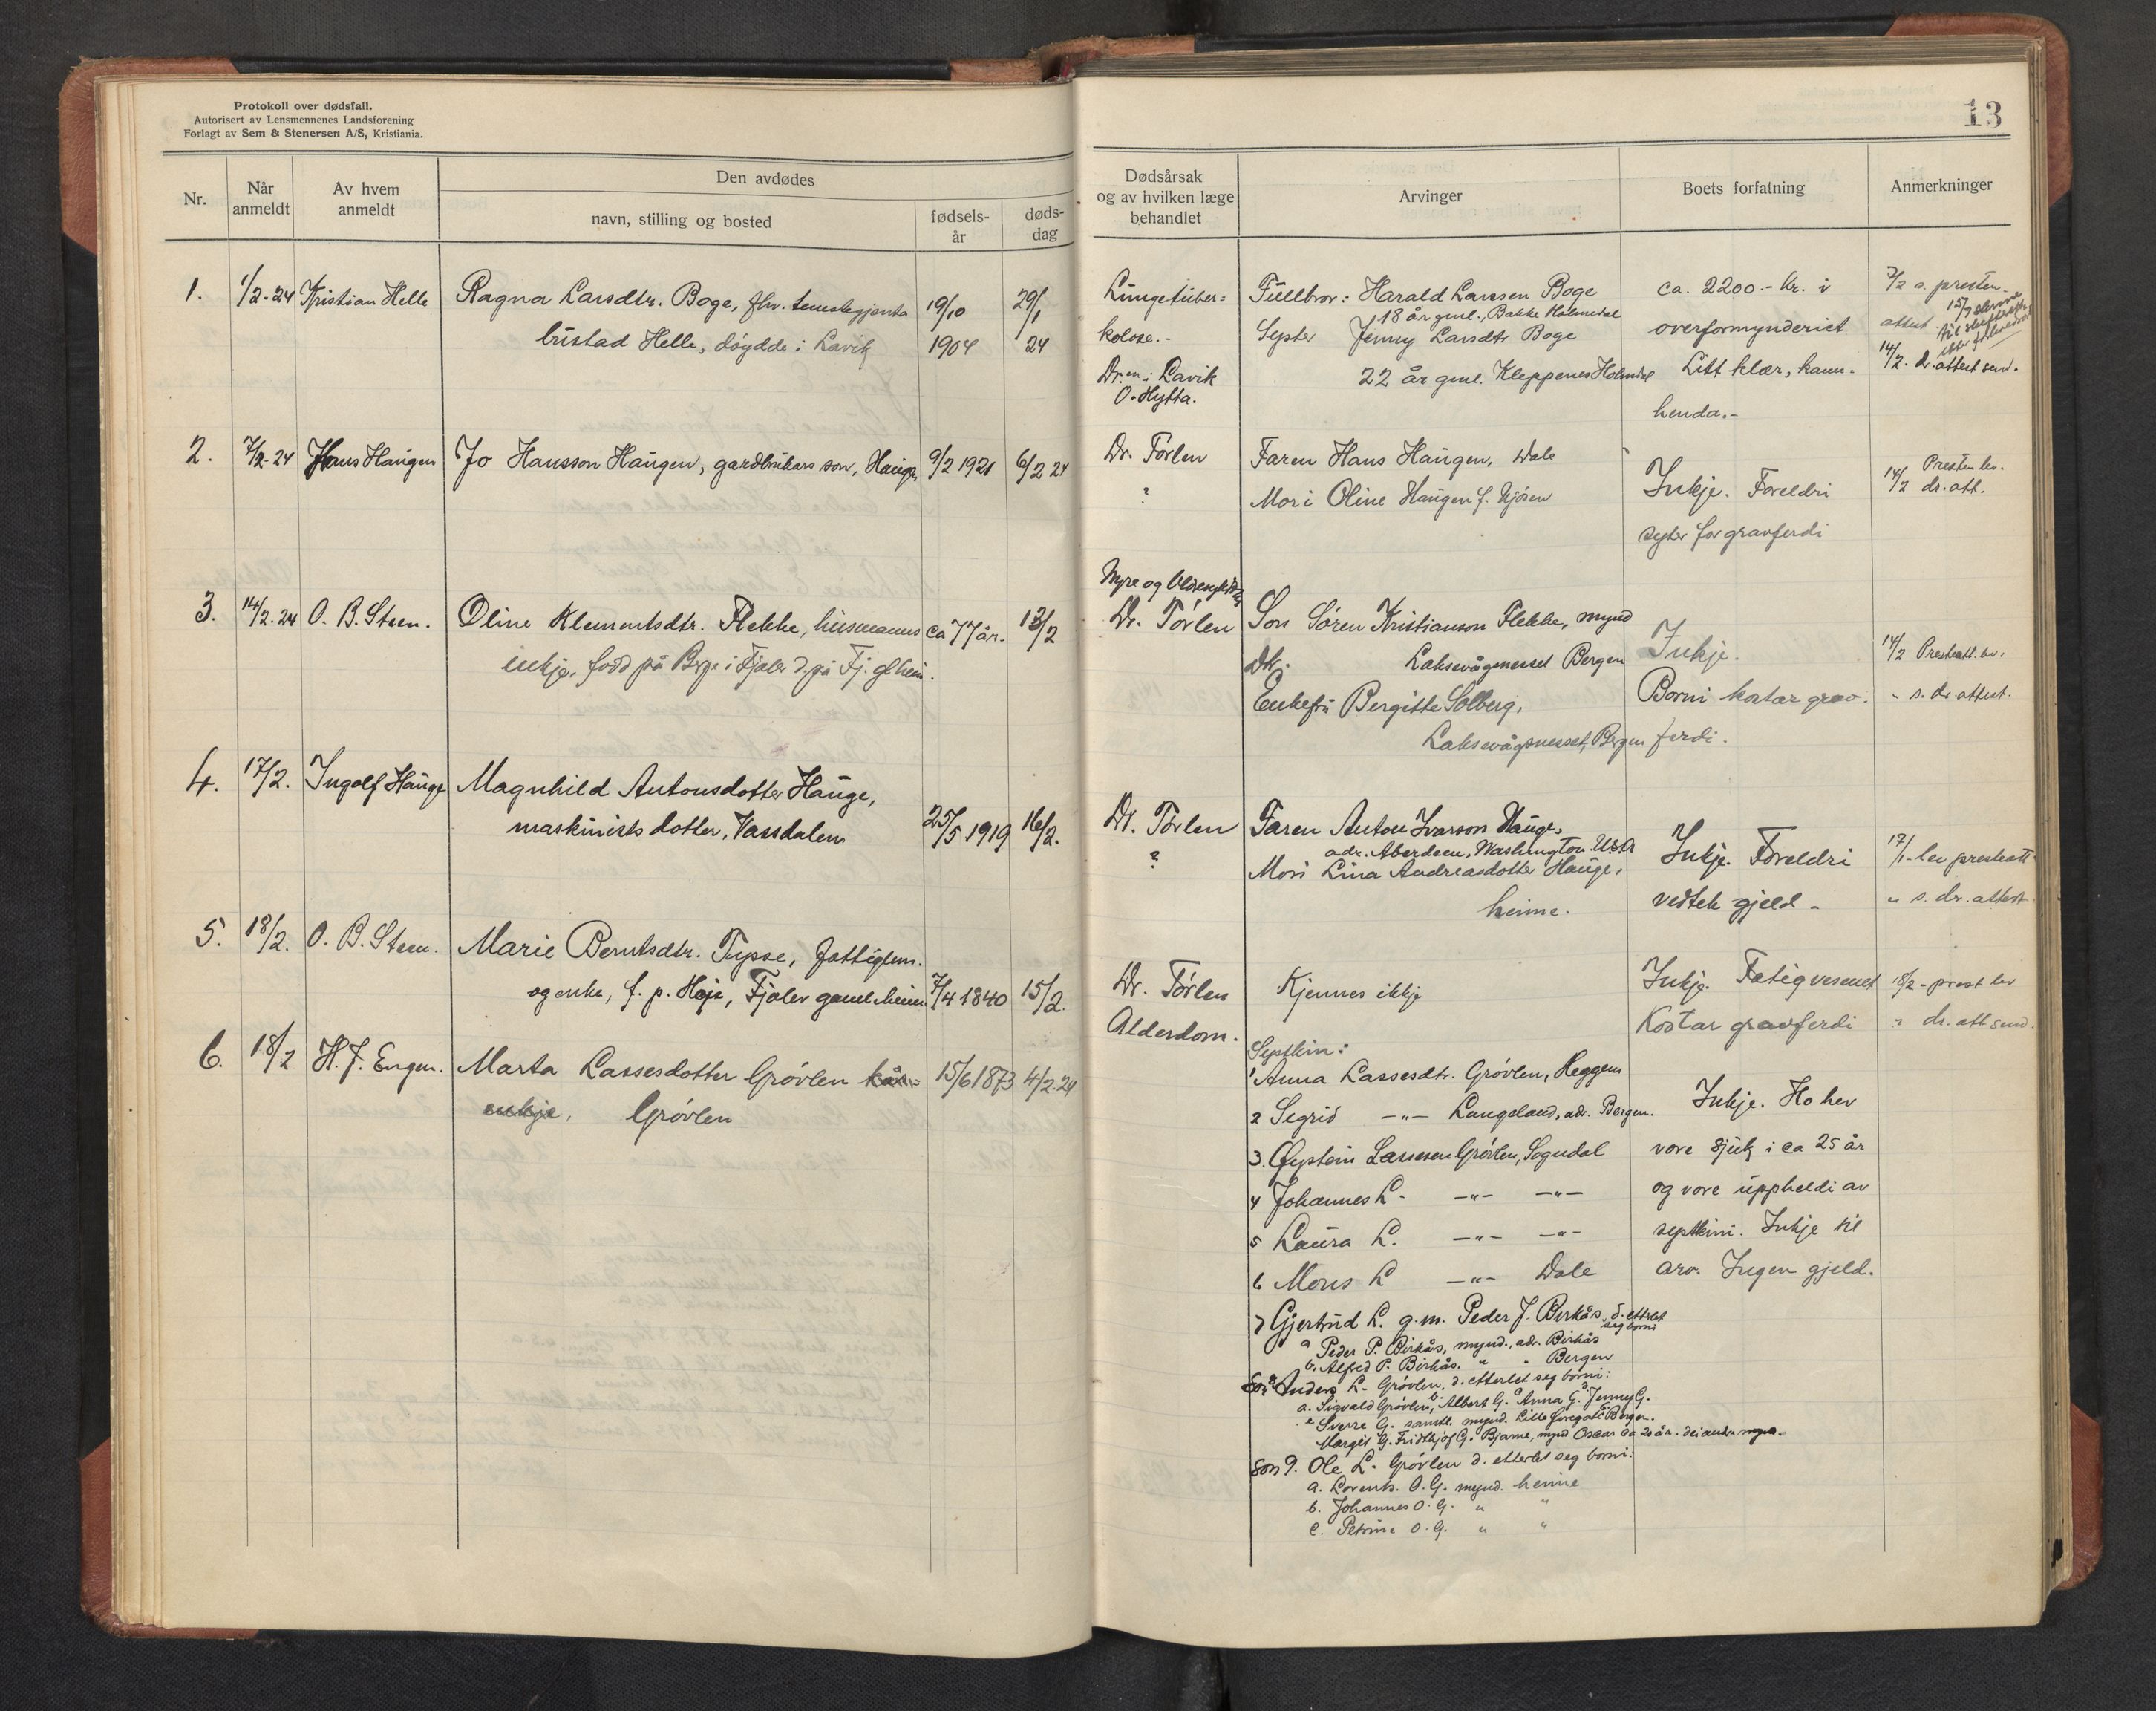 Protokoll over dødsfall.
Autorisert av Lensmennenes Landsforening
Forlagt av Sem & Stenersen A/S, Kristiania.
13
Nr.
Når anmeldt
Av hvem anmeldt
Den avdødes
navn, stilling og bosted
fødsels-år
døds-dag
Dødsårsak og av hvilken læge behandlet
Arvinger
Boets forfatning
Anmerkninger
1. 1/2-24 Kristian Helle Ragna Larsdtr. Boge, fhv. tenestegjenta 19/10 29/1
bustad Helle, döydde i Lavik 1904 24
Lungetuber=
kolose.-
Dr.en i Lavik
O. Hytta.
Fullbror: Harald Larssen Boge
18 år gml., Bakke Holmedal
Syster Jenny Larsdtr Boge
22 år gml. Kleppenes Holmedal
ca. 2200.- Kr. i
overformynderiet
Litt klær, kann.
henda.-
7/2 s. presten.
attest
14/2. dr. attest send.
2. 7/2-24 Hans Haugen Jo Hansson Haugen, gardbrukars son, Haugen 9/2 1921 6/2 24
Dr. Tørlen
?
Faren Hans Haugen, Dale
Mori Oline Haugen f. Njösen
Inkje. Foreldri
syter for gravferdi
Presten lev.
14/2 dr. att.
3. 14/2.24 O. B. Steen. Oline Klementsdtr. Flekke, husmanns ca 77 år. 13/2
enkje, fødd på Berge i Fjaler d. på Fj. glheim.
Nyre og
Dr. Tørlen
Son Søren Kristianson Flekke, mynd
Laksevågnesset Bergen
Dtr.
Enkefru Bergitte Solberg,
Laksevågsnesset, Bergen
Inkje.
Borni kostar grav.
ferdi.
14/2 Prestatt. lev.
" s. dr attest.
4. 17/2. Ingolf Hauge Magnhild Antonsdotter Hauge,
maskinists dotter, Vassdalen 25/5 1919 16/2.
Dr. Tørlen
?
Faren Anton Ivarson Hauge,
adr. Aberdeen, Washington U.S.A
Mori Lina Andreasdotter Hauge,
heime.
Inkje. Foreldri
vedtek gjeld -
17/1 - lev prestatt
" s. dr. attest
5. 18/2. O. B. Steen. Marie Berntsdtr. Tysse, fattiglem.
og enke, f. p. Høje, Fjaler gamleheim 7/4 1840 15/2.
Dr. Tørlen
Alderdom.
Kjennes ikkje
Inkje. Fatigvesenet
Kostar gravferdi
18/2 - prest lev
" dr. att send.
6. 18/2 H. J. Engen. Marta Lassesdotter Grøvlen kår= 15/6 1873 4/2.24
enkje. Grøvlen
Systkin:
1 Anna Lassesdtr. Grøvlen, Heggem
2 Segrid -"- Langeland, adr. Bergen.
3. Øystein Lassesen Grøvlen, Sogndal
4 Johannes L. -"- -"-
5 Laura L. -"- -"-
6 Mons L -"- Dale
7 Gjertrud L. g.m. Peder J. Birkås, d. etterlet
seg borni
a Peder P. Birkås, mynd., adr. Birkås
b. Alfred P. Birkås. " " Bergen
Son 8 Anders L. Grøvlen, d. etterlet seg borni:
a. Sigvald Grøvlen, b. Albert G. c Anna G. d. Jenny G.
e Sverre G. samtl. mynd. Lille Øvregate Bergen.
Margit G. Fridthjof G. Bjarne, mynd Oscar ca 20 år. dei andre mynd.
Son 9. Ole L. Grøvlen d. etterlet seg borni:
a. Lorents. O. G. mynd. heime
b. Johannes O. G. " "
c. Petrine O. G. " "
Inkje. Ho hev
vore sjuk i ca 25 år
og vore uppheldi av
systkini. Inkje til
arv. Ingen gjeld.